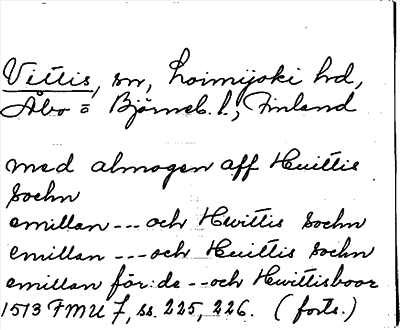 Vittis, sn, Loimijoki hd,
Åbo o Björneb. l., Finland
med almogen aff Huittis
Sochn
emillan --- och Hwittis Sochn
emillan --- och Huittis Sochn
emillan för:de -- och Hwittisboar
1513 FMU 7, ss. 225, 226. (forts.)